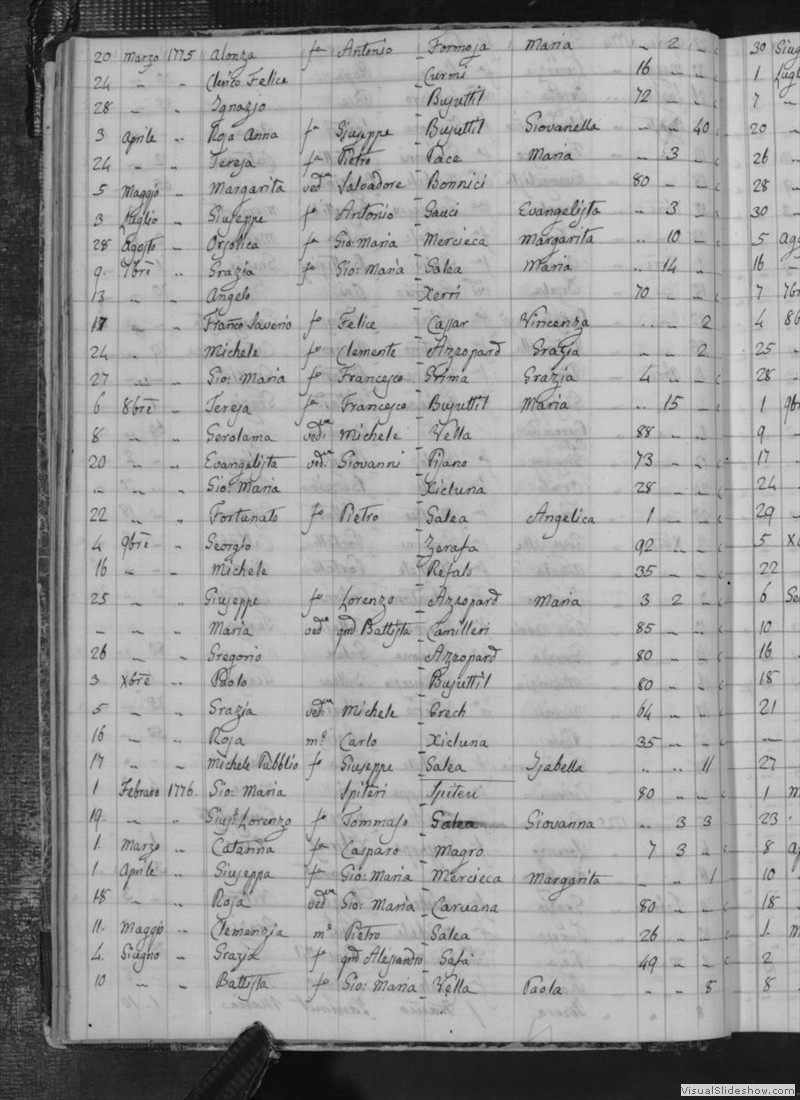 20 Marzo 1775 Alonza fa Antonio Formoja Maria – 2 – 30 Giug
24 – – Clerico Felice Curmi 16 – – 1 Lugl
28 – – Ignazio Bujuttil 72 – – 7 –
3 Aprile – Roja Anna fa Giujeppe Bujuttil Giovanella – – 40 20 –
24 – – Tereja fa Pietro Pace Maria – 3 – 26 –
5 Maggio – Margarita veda Salvadore Bonnici 80 – – 28 –
3 Luglio – Giujeppe fo Antonio Gauci Evangelijta – 3 – 30 –
28 Agosto – Orjolica fa Gio: Maria Mercieca Margarita .. 10 – 5 Ago
9 7bre .. Grazia fa Gio: Maria Galea Maria .. 14 .. 16 –
13 – – Angelo Xerri 70 – – 7 7br
17 – .. Franco Saverio fo Felice Cajjar Vincenza .. – 2 4 8b
24 . .. Michele fo Clemente Azzopard Grazia – – 2 25 –
27 – .. Gio: Maria fo Francejco Grima Grazia 4 – – 28 –
6 8bre .. Tereja fa Francejco Bujuttil Maria .. 15 – 1 9br
8 – .. Gerolama veda Michele Vella 88 – – 9 –
20 – – Evangelijta veda Giovanni Pijano 73 – – 17 –
– – .. Gio: Maria Xicluna 28 – – 24 –
22 – .. Fortunato fo Pietro Galea Angelica 1 – – 29 –
4 9bre – Georgio Zerafa 92 – – 5 Xb
16 – – Michele Refalo 35 – – 22 –
25 – .. Giujeppe fo Lorenzo Azzopard Maria 3 2 – 6 Ge
– – .. Maria veda qm Battijta Camilleri 85 – – 10
26 – .. Gregorio Azzopard 80 – – 16 –
3 Xbre .. Paolo Bujuttil 80 – – 18
5 – .. Grazia veda Michele Grech 64 – – 21
16 – .. Roja me Carlo Xicluna 35 – – –
17 – .. Michele Pubblio fo Giujeppe Galea Ijabella .. .. 11 27
1 Febraro 1776. Gio: Maria Spiteri Spiteri 80 – – 1 M
19. – .. Giuje Lorenzo fo Tommajo Galea Giovanna .. 3 3 23
1. Marzo .. Catarina fa Cajparo Magro 7 3 .. 8 Ap
1 Aprile .. Giujeppa fa Gio: Maria Mercieca Margarita – .. 1 10
18 – .. Roja veda Gio: Maria Caruana 80 – – 18
11. Maggio .. Clemenzia me Pietro Galea 26 – – 1. M
4. Giugno – Grazia fa qm Alejsandro Safa 49 – – 2
10 – – Battijta fo Gio: Maria Vella Paola – – 8 8
VisualSlideshow.com